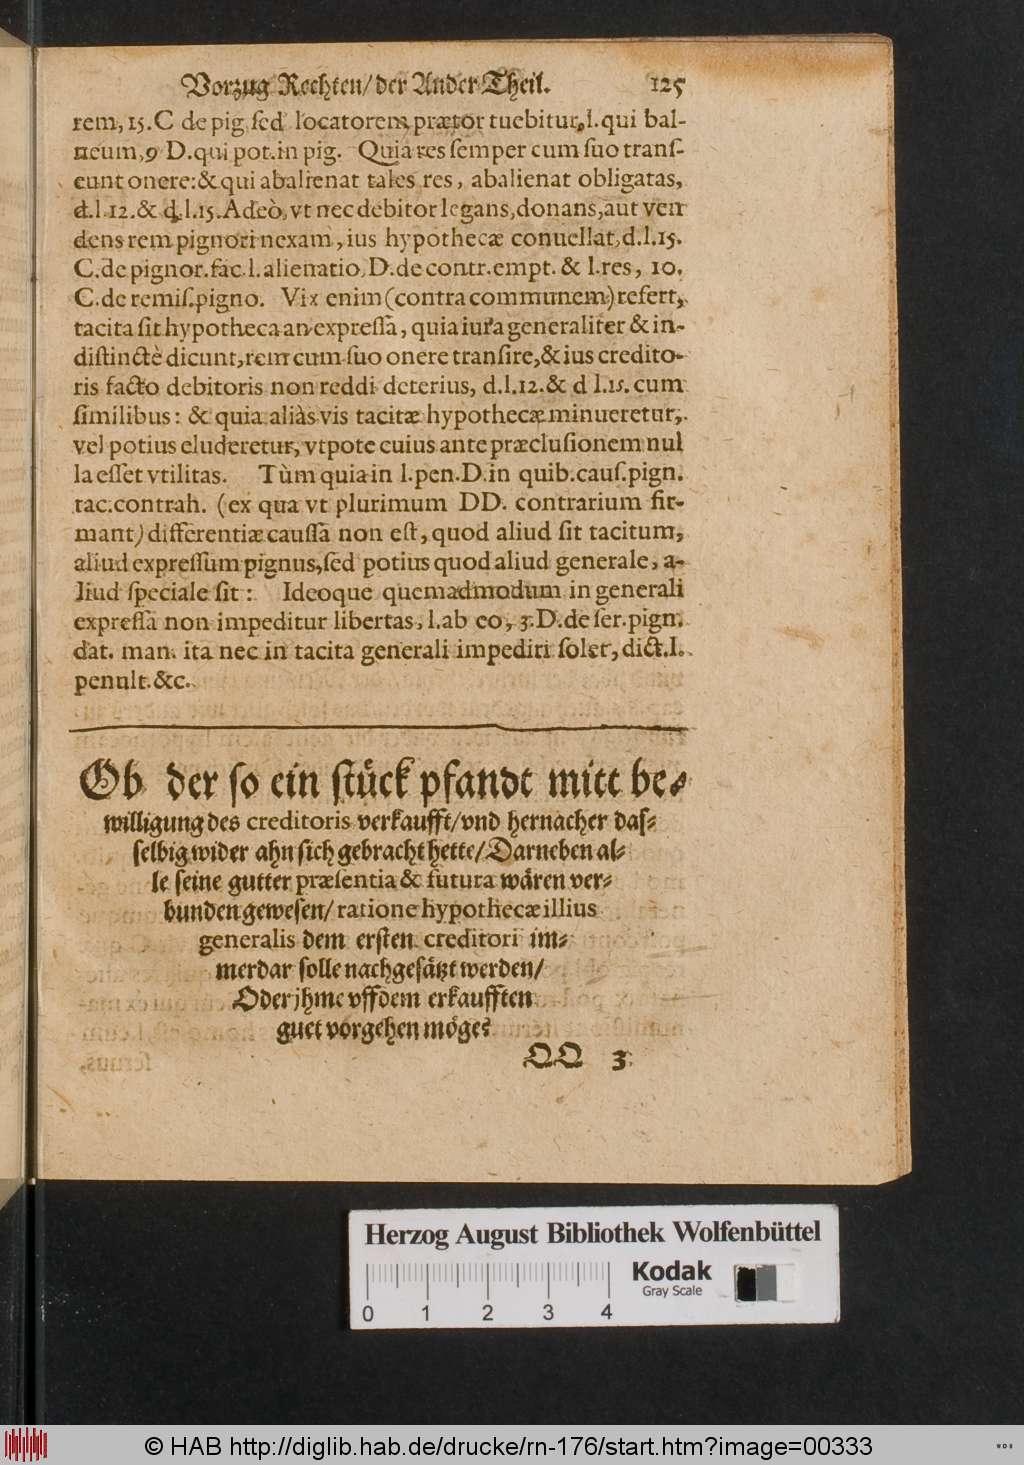 Vorzug Rechten/ der Ander Theil. 125
rem, 15. C de pig. ſed locatorem prætor tuebitur, l. qui bal-
neum, 9 D. qui pot. in pig. Quia res ſemper cum ſuo tranſ-
eunt onere: & qui abalienat tales res, abalienat obligatas,
d. l. 12. & d. l. 15. Adeò, vt nec debitor legans, donans, aut ven
dens rem pignori nexam, ius hypothecæ conuellat, d. l. 15.
C. de pignor. fac. l. alienatio, D. de contr. empt. & l. res, 10.
C. de remiſ. pigno. Vix enim (contra communem) refert,
tacita ſit hypotheca an expreſſa, quia iura generaliter & in-
diſtinctè dicunt, rem cum ſuo onere tranſire, & ius credito-
ris facto debitoris non reddi deterius, d. l. 12. & d l. 15. cum
ſimilibus: & quia aliàs vis tacitæ hypothecæ minueretur,
vel potius eluderetur, vtpote cuius ante præcluſionem nul
la eſſet vtilitas. Tùm quia in l. pen. D. in quib. cauſ. pign.
tac. contrah. (ex qua vt plurimum DD. contrarium fir-
mant) differentiæ cauſſa non eſt, quod aliud ſit tacitum,
aliud expreſſum pignus, ſed potius quod aliud generale, a-
liud ſpeciale ſit: Ideoque quemadmodum in generali
expreſſa non impeditur libertas, l. ab eo, 3. D. de ſer. pign.
dat. man. ita nec in tacita generali impediri ſolet, dict. l.
penult. &c.
Ob der ſo ein ſtück pfandt mitt be-
willigung des creditoris verkaufft/ vnd hernacher daſ-
ſelbig wider ahn ſich gebracht hette/ Darneben al-
le ſeine gutter præſentia & futura wären ver-
bunden geweſen/ ratione hypothecæ illius
generalis dem erſten creditori im-
merdar ſolle nachgeſätzt werden/
Oder jhme vff dem erkaufften
guet vorgehen möge?
QQ 3
Herzog August Bibliothek Wolfenbüttel
Kodak
Gray Scale
0 1 2 3 4
© HAB http://diglib.hab.de/drucke/rn-176/start.htm?image=00333